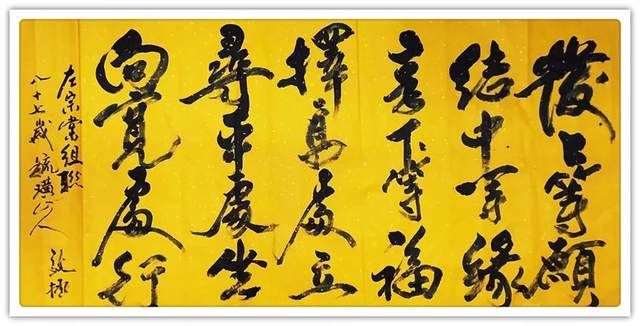 發上等願
結中等緣
享下等福
擇高處立
尋平處坐
向寬處行
左宗棠組聯
八十七歲璜山人